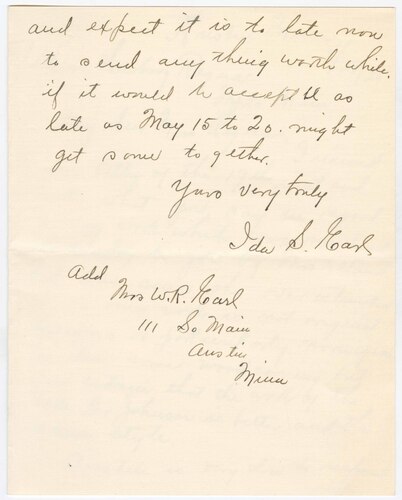 and expect it is to late now
to send anything worth while.
if it would be acceptble as
late as May 15 to 20. might
get some together.
Yurs very truly
Ida S. Earl
Add
Mrs W.R. Earl
111 So Main
Austin
Minn